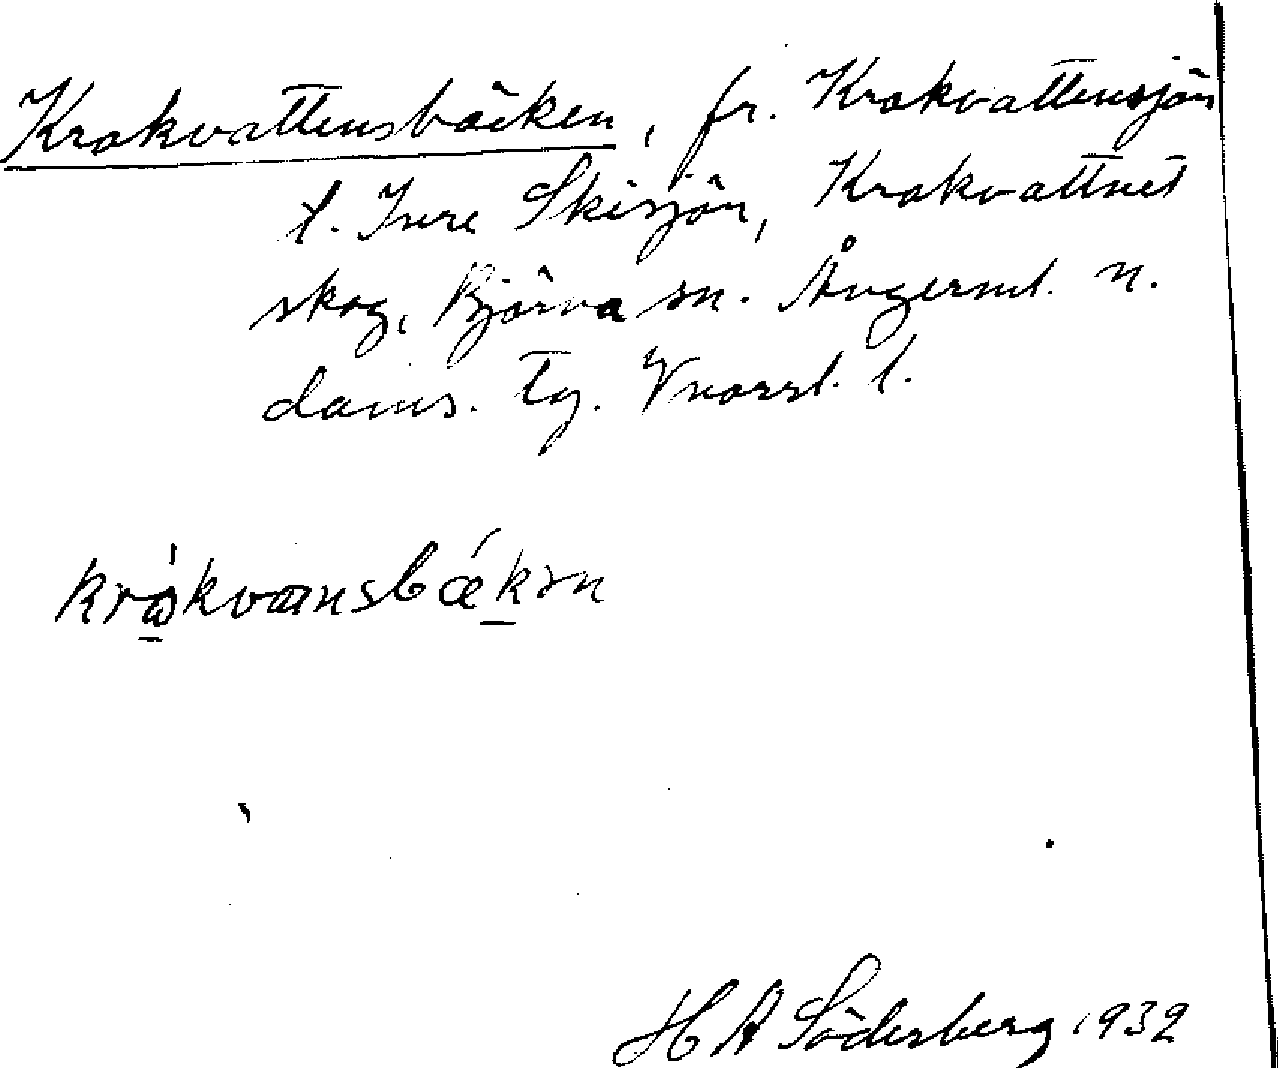 Krokvattensbäcken, fr. Krokvattensjön
t. Inre Skisjön, Krokvattnet
skog, Björna sn. Ångerml. n.
doms. Tg. Vnorrl. l.
kråkvansbækən
H A Söderberg 1932